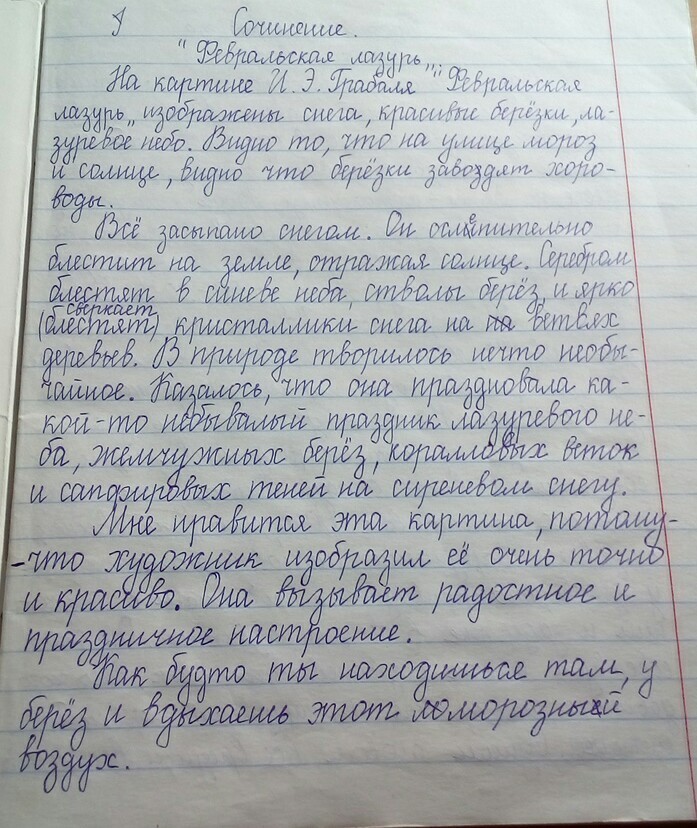 Сочинение.
"Февральская лазурь„.
На картине И. Э. Грабаля "Февральская
лазурь„ изображены снега, красивые берёзки, ла-
зуревое небо. Видно то, что на улице мороз
и солнце, видно что берёзки заводят хоро-
воды.
Всё засыпано снегом. Он ослепительно
блестит на земле, отражая солнце. Серебром
блестят в синеве неба, стволы берёз, и ярко
сверкает
(блестят) кристаллики снега на на ветвях
деревьев. В природе творилось нечто необы-
чайное. Казалось, что она праздновала ка-
кой-то небывалый праздник лазуревого не-
ба, жемчужных берёз, коралловых веток
и сапфировых теней на сиреневом снегу.
Мне нравится эта картина, потому-
-что художник изобразил её очень точно
и красиво. Она вызывает радостное и
праздничное настроение.
Как будто ты находишься там, у
берёз и вдыхаешь этот морозный
воздух.